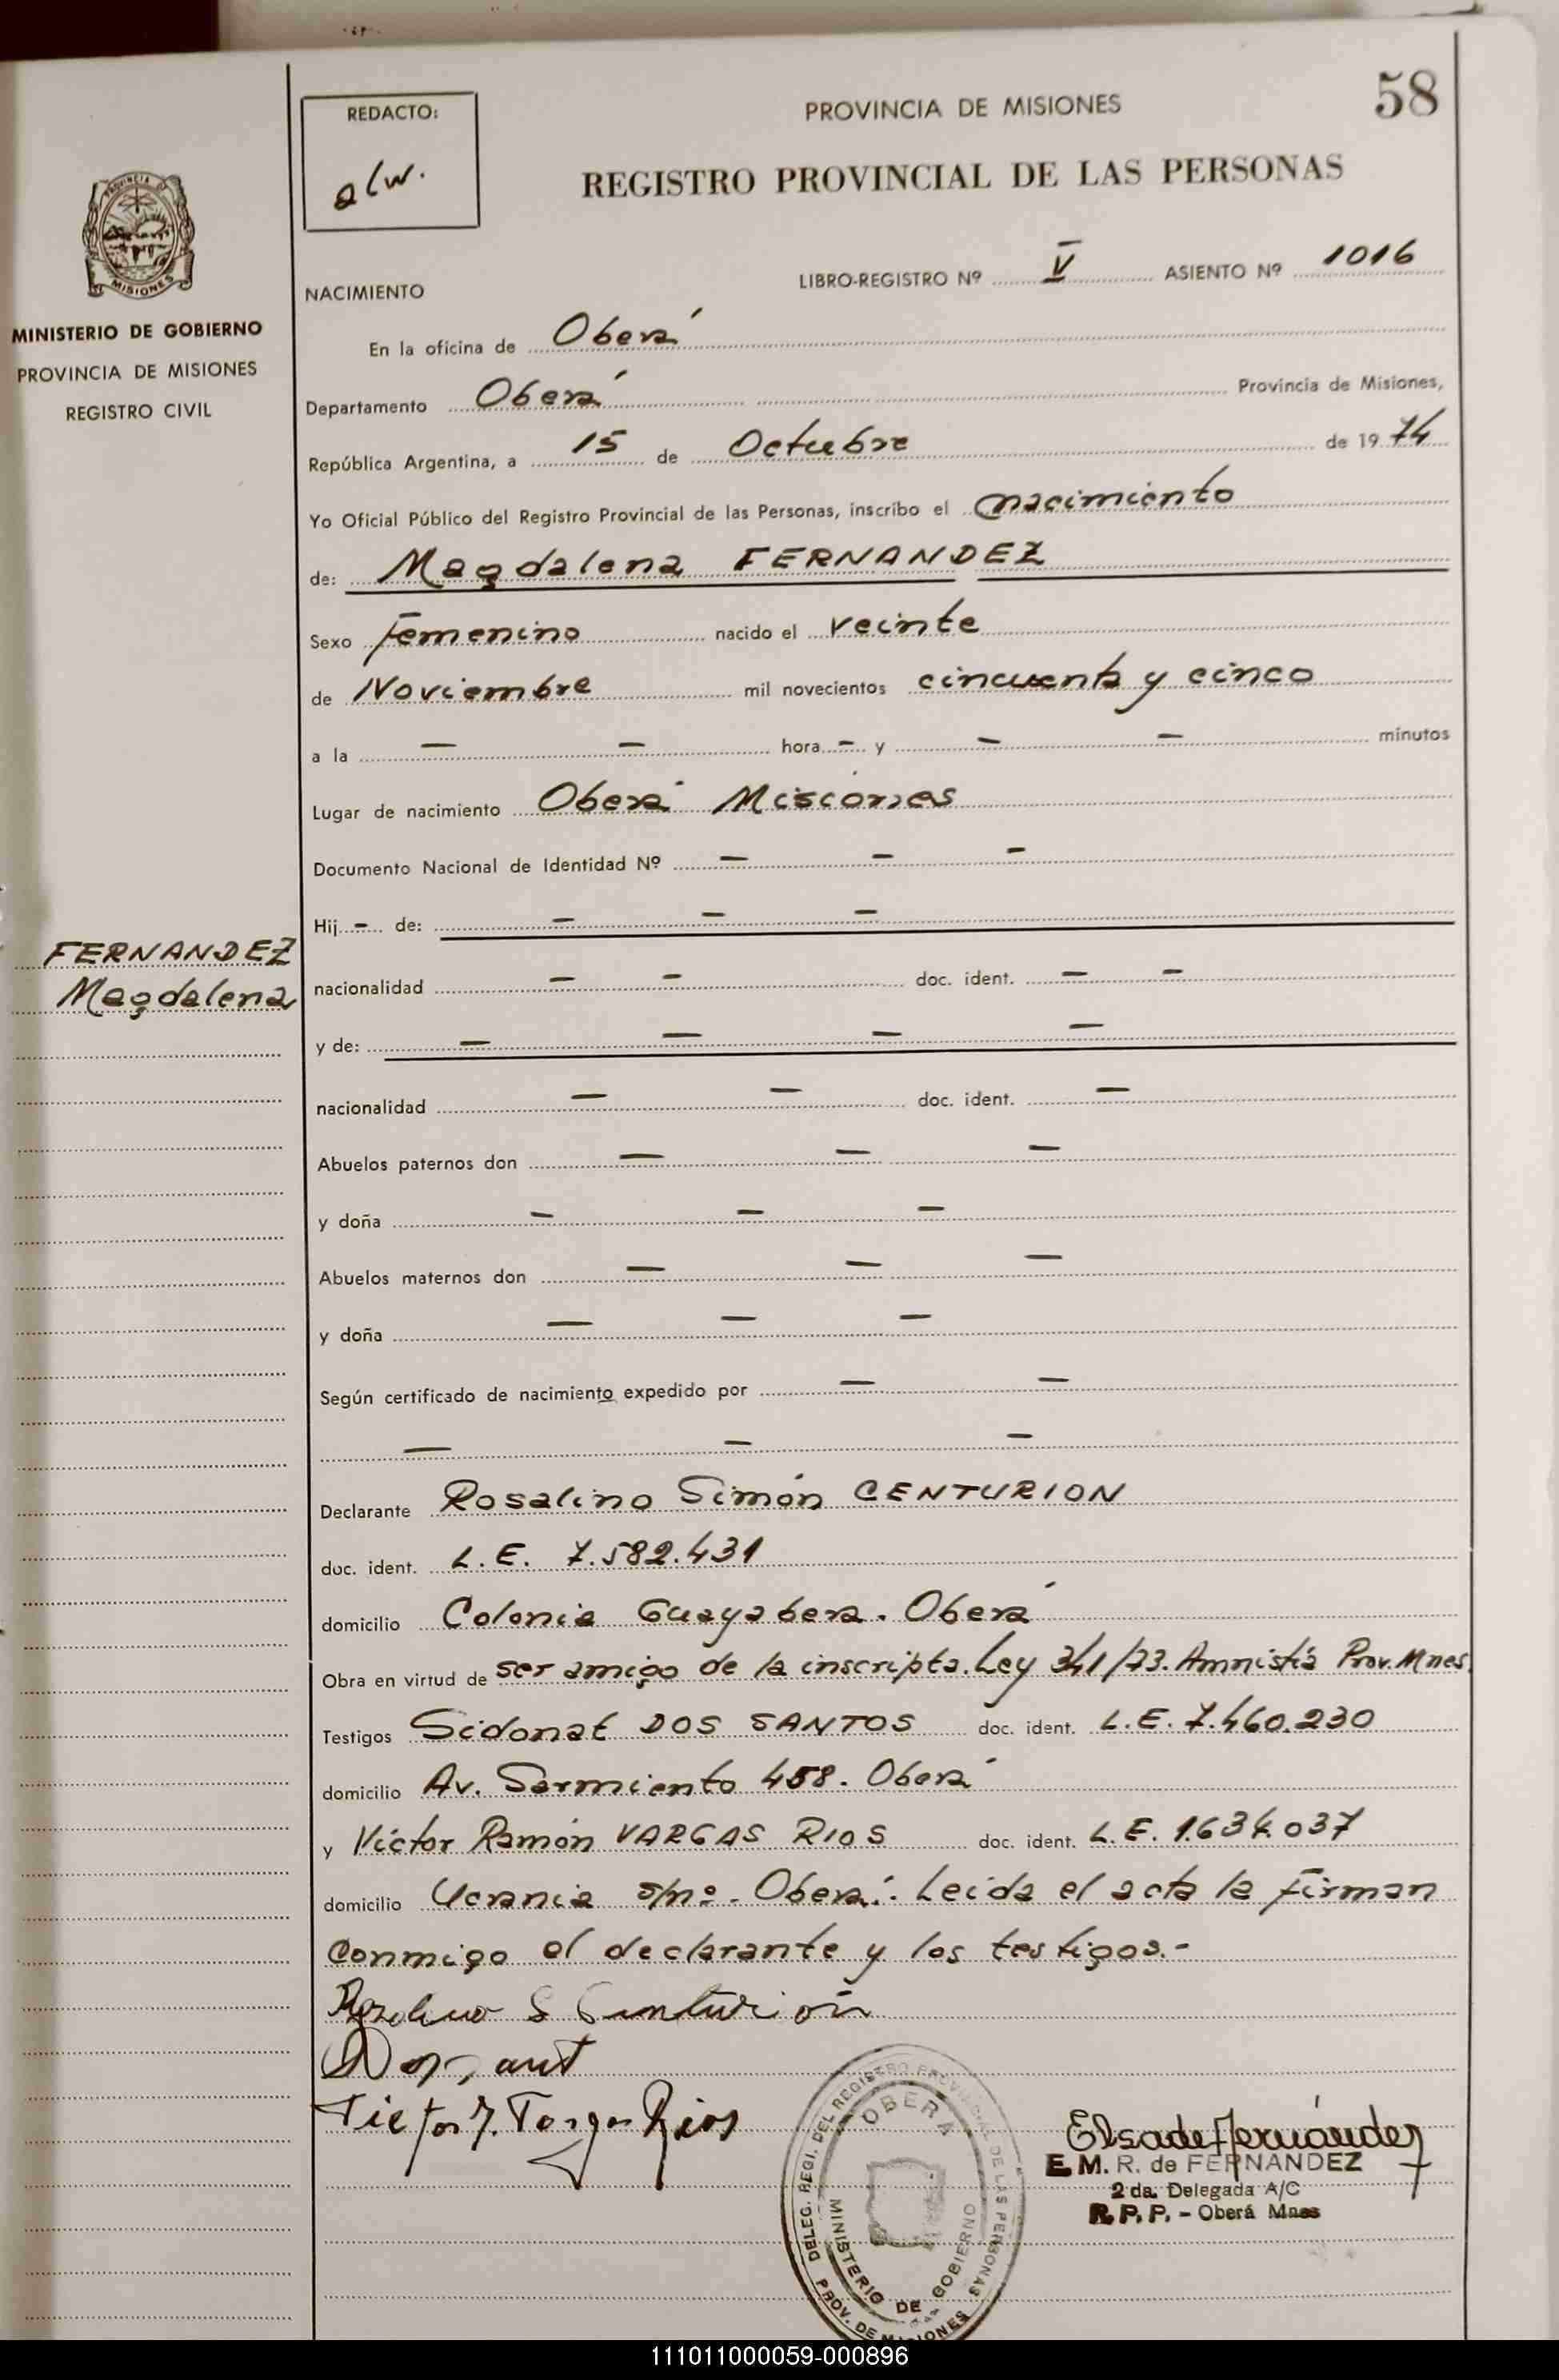 58
REDACTO:
alw.
PROVINCIA DE MISIONES
REGISTRO PROVINCIAL DE LAS PERSONAS
PROVINCIA DE
MISIONES
MINISTERIO DE GOBIERNO
PROVINCIA DE MISIONES
REGISTRO CIVIL
LIBRO-REGISTRO Nº V ASIENTO Nº 1016
NACIMIENTO
En la oficina de Oberá
Departamento Oberá Provincia de Misiones,
República Argentina, a 15 de Octubre de 1974
Yo Oficial Público del Registro Provincial de las Personas, inscribo el nacimiento
de: Magdalena FERNANDEZ
Sexo femenino nacido el veinte
de Noviembre mil novecientos cincuenta y cinco
a la — — hora - y — — minutos
Lugar de nacimiento Oberá Misiones
Documento Nacional de Identidad Nº — — —
Hij - de: — — —
FERNANDEZ
Magdalena
nacionalidad — — doc. ident. — —
y de: — — — —
nacionalidad — — doc. ident. —
Abuelos paternos don — — —
y doña — — —
Abuelos maternos don — — —
y doña — — —
Según certificado de nacimiento expedido por — —
— — —
Declarante Rosalino Simón CENTURION
doc. ident. L.E. 7.582.431
domicilio Colonia Guayabera. Oberá
Obra en virtud de ser amigo de la inscripta. Ley 341/73. Amnistía Prov. Mnes.
Testigos Sidonat DOS SANTOS doc. ident. L.E. 7.460.230
domicilio Av. Sarmiento 458. Oberá
y Víctor Ramón VARGAS RIOS doc. ident. L.E. 1.634.037
domicilio Ucrania s/nº. Oberá. Leída el acta la firman
conmigo el declarante y los testigos.-
Rosalino S Centurión
Victor R. Vargas Rios
DELEG. REGI. DEL REGISTRO PROVINCIAL DE LAS PERSONAS
OBERA
MINISTERIO DE GOBIERNO
PROV. DE MISIONES
Elsa de Fernández
E. M. R. de FERNANDEZ
2 da. Delegada A/C
R. P. P. - Oberá Mnes
111011000059-000896